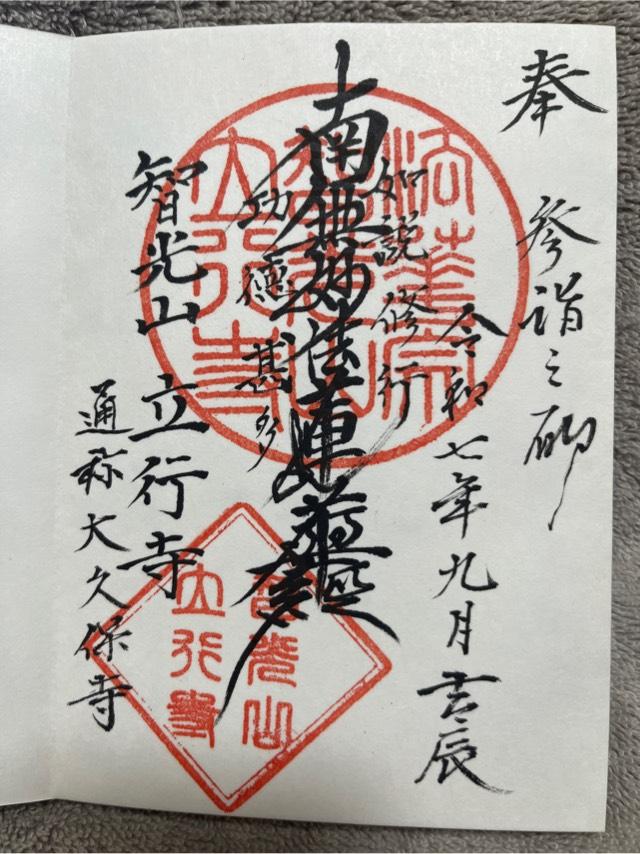 奉 参詣之砌
令和七年九月吉辰
如説修行
南無妙法蓮華経
功徳甚多
智光山 立行寺
通称大久保寺
法華宗
智光山
立行寺
智光山
立行寺